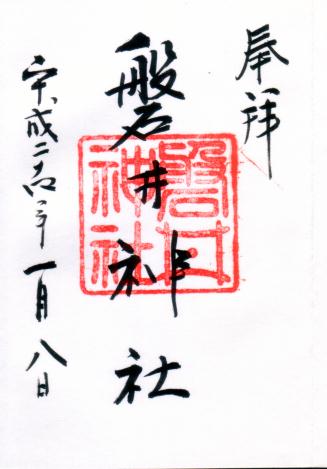 奉拝
磐井神社
磐井神社
平成二十六年一月八日